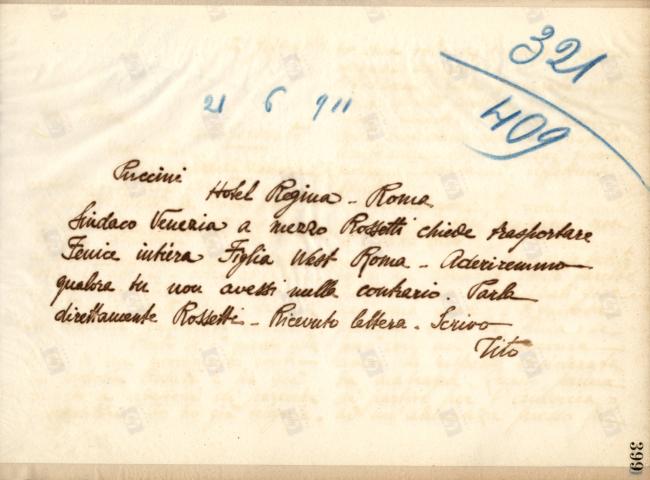 321
409
21 6 911
Puccini
Hotel Regina - Roma
Sindaco Venezia a mezzo Rossetti chiede trasportare
Fenice intiera Figlia West Roma - Aderiremmo
qualora tu non avessi nulla contrario. Parla
direttamente Rossetti - Ricevuto lettera. Scrivo
Tito
399